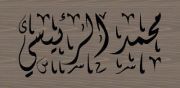 محمد الرئيسي